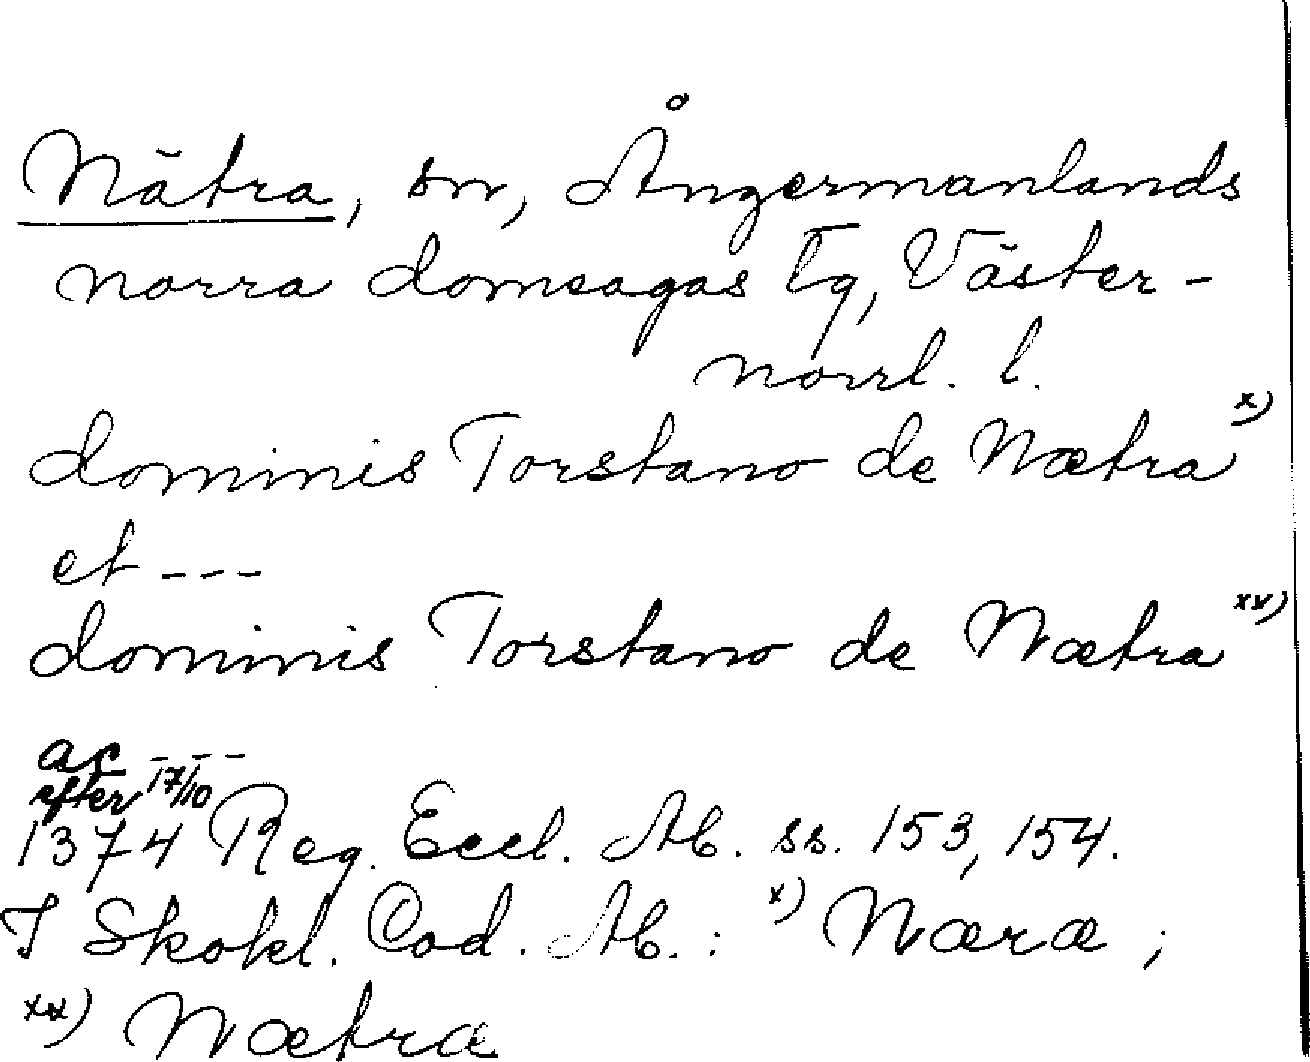 Nätra, sn, Ångermanlands
norra domsagas tg, Väster-
norrl. l.
dominis Torstano de Nætra x)
et ---
dominis Torstano de Nætra xx)
ac ---
efter 17/10
1374 Reg. Eccl. Ab. ss. 153, 154.
I Skokl. Cod. Ab.: x) Næræ ;
xx) Nætræ